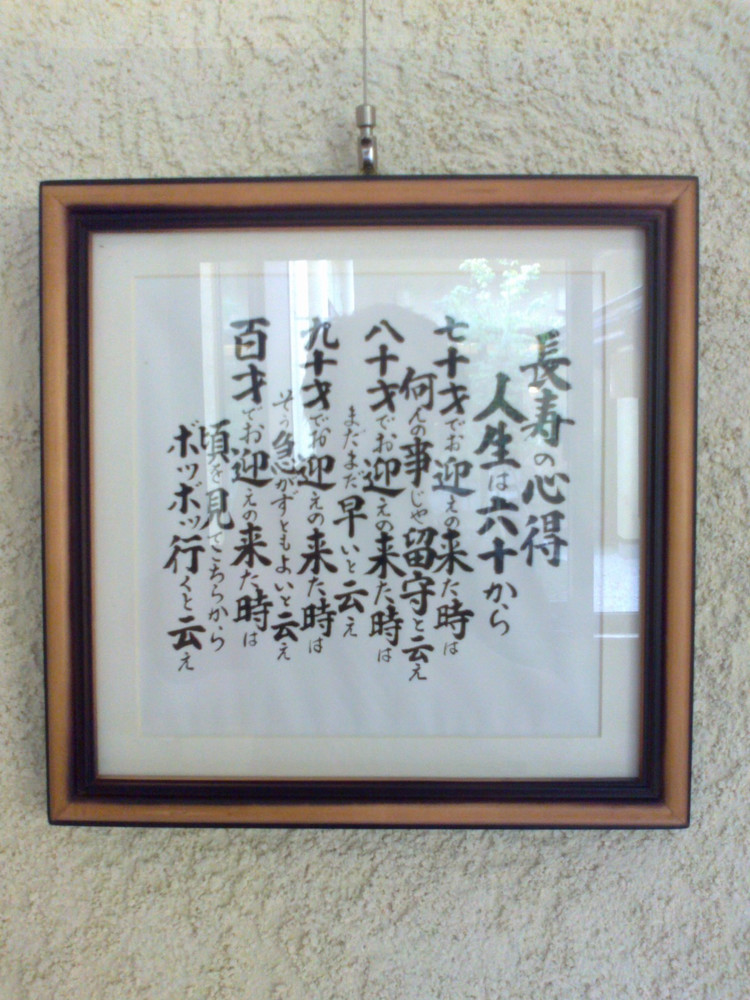 長寿の心得
人生は六十から
七十才でお迎えの来た時は
何んの事じゃ留守と云え
八十才でお迎えの来た時は
まだまだ早いと云え
九十才でお迎えの来た時は
そう急がずともよいと云え
百才でお迎えの来た時は
頃を見てこちらから
ボツボツ行くと云え